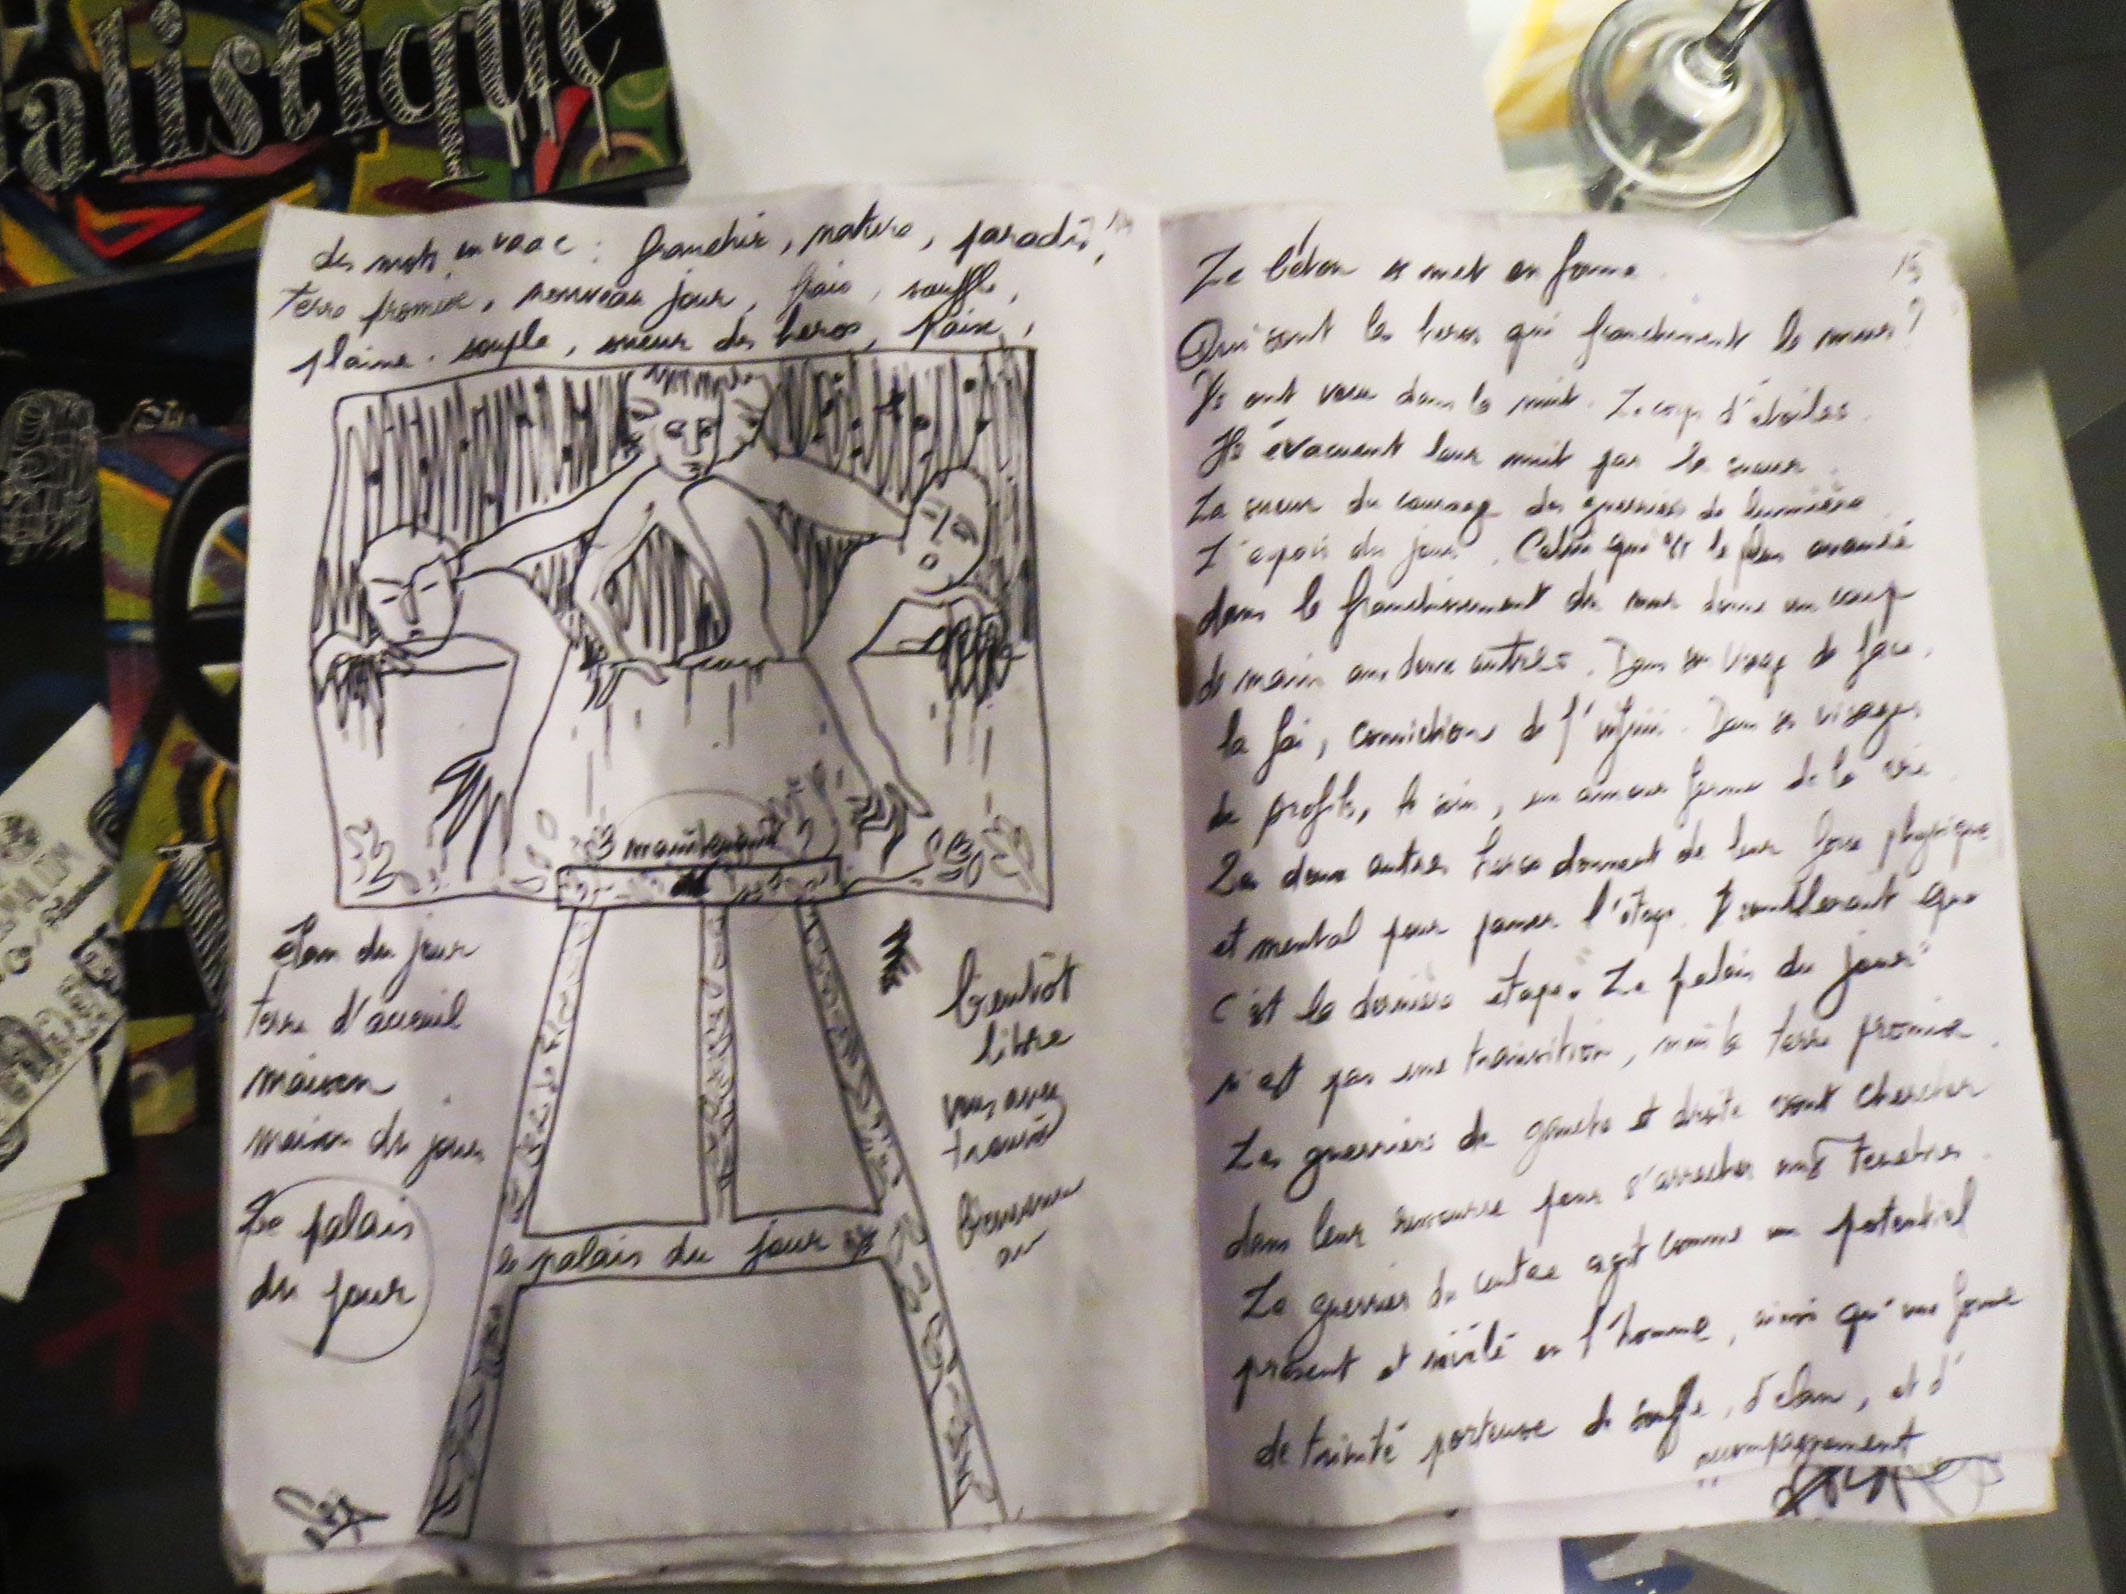 alistique
e
14
des mots en vrac : franchir, nature, paradis,
terre promise, nouveau jour, frais, souffle,
plaine. souple, sueur des heros, Paix,
maintenant
élan du jour
terre d'acceuil
maison
maison du jour
Le palais
du jour
le palais du jour
bientôt
libre
vous avez
trouvé
15
Le béton se met en forme.
Qui sont les heros qui franchissent le mur ?
Ils ont vécu dans la nuit. Le corps d'étoiles.
Ils évacuent leur nuit par la sueur.
La sueur du courage des guerriers de lumière.
L'espoir du jour. Celui qui est le plus avancé
dans le franchissement du mur donne un coup
de main aux deux autres. Dans son visage de face,
la foi, convictions de l'infini. Dans les visages
de profils, le soin, un amour ferme de la vie.
Les deux autres heros donnent de leur force physique
et mental pour passer l'étape. Il semblerait que
c'est la dernière etape. Le palais du jour
n'est pas une transition, mais la terre promise.
Les guerriers de gauche et droite vont chercher
dans leur ressource pour s'arracher aux Tenebres.
Le guerrier du centre agit comme un potentiel
présent et révélé en l'homme, ainsi qu'une forme
de trinité porteuse de souffle, d'elan, et d'
accompagnement